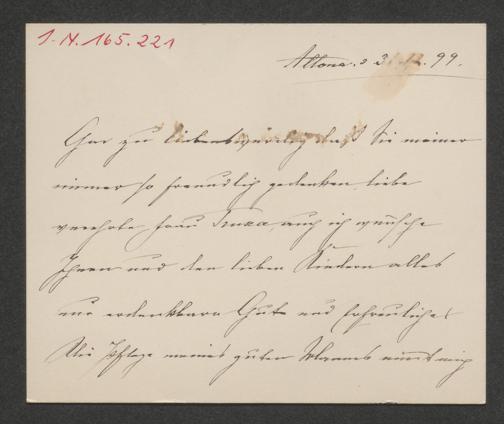 I. N. 165.221
Altona. d 31. 12. 99.
Gar zu liebenswürdig daß Sie meiner
immer so freundlich gedenken liebe
verehrte Frau Truxa, auch ich wünsche
Ihnen und den lieben Kindern alles
nur erdenkbare Gute und Erfreuliche!
Die Pflege meines guten Mannes nimmt mich